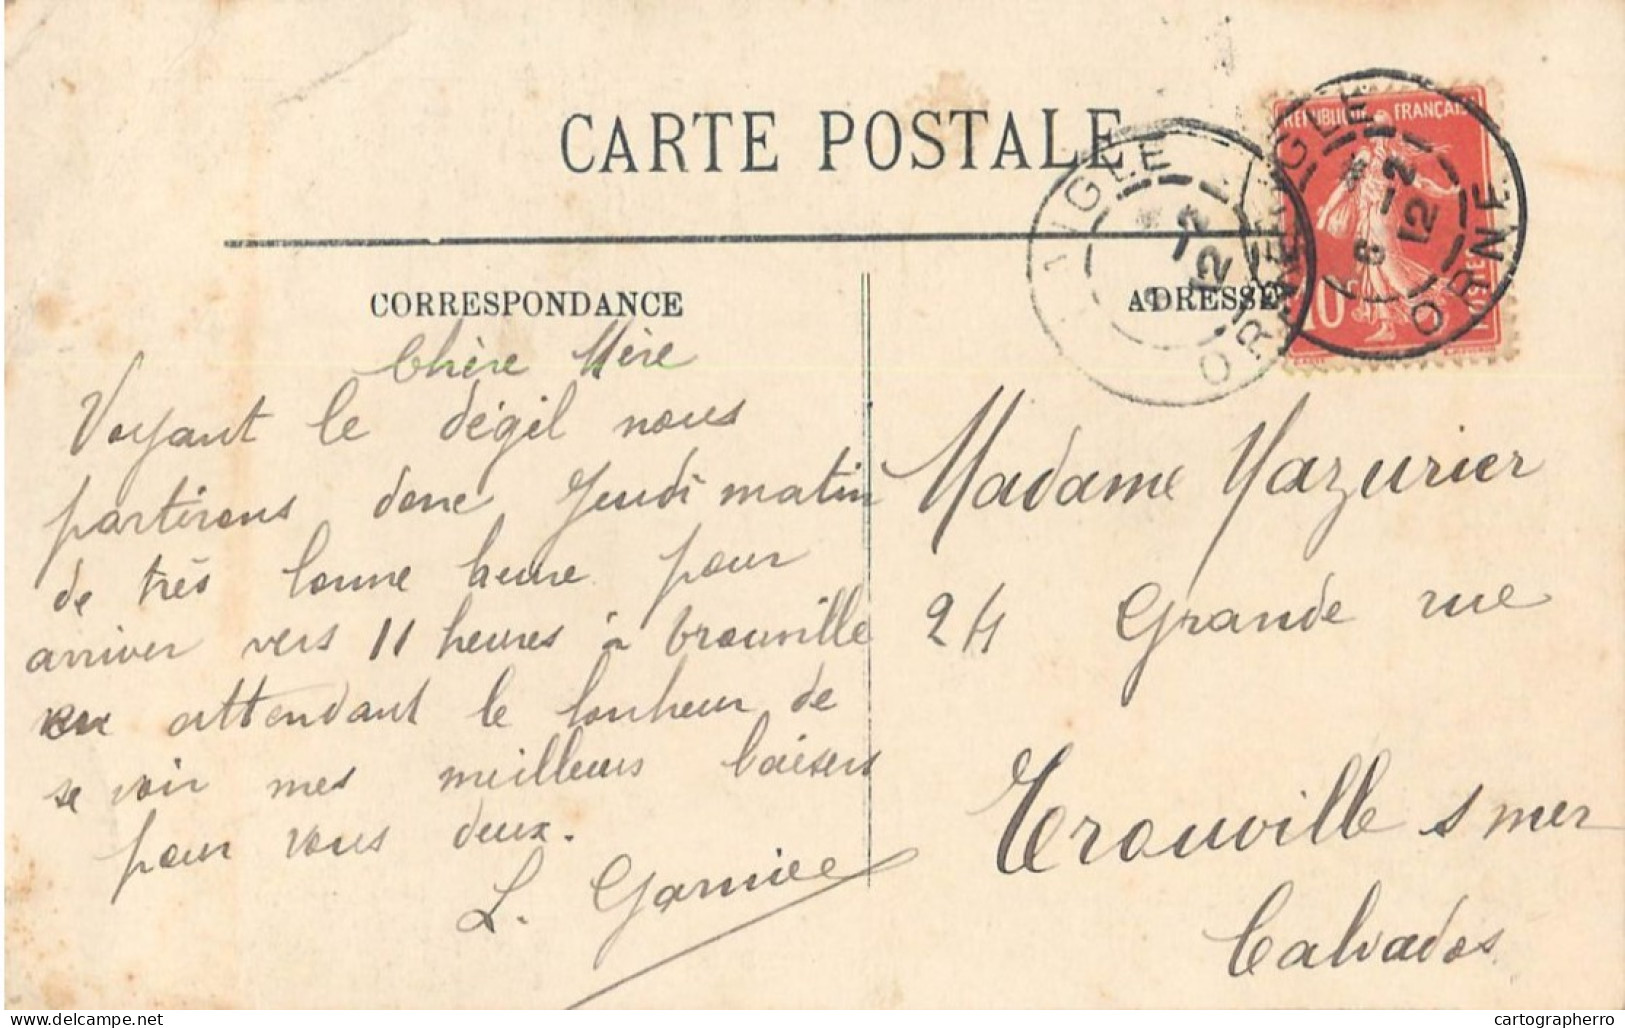 CARTE POSTALE
CORRESPONDANCE
ADRESSE
RÉPUBLIQUE FRANÇAISE
10c
POSTES
LAIGLE
6 -2
12
ORNE
LAIGLE
6 -2
12
ORNE
Chère Mère
Voyant le dégil nous
partirons donc Jeudi matin
de très bonne heure pour
arriver vers 11 heures à Trouville
en attendant le bonheur de
se voir mes meilleurs baisers
pour vous deux.
L. Garnier
Madame Mazurier
24 Grande rue
Trouville s mer
Calvados
delcampe.net
cartographerro